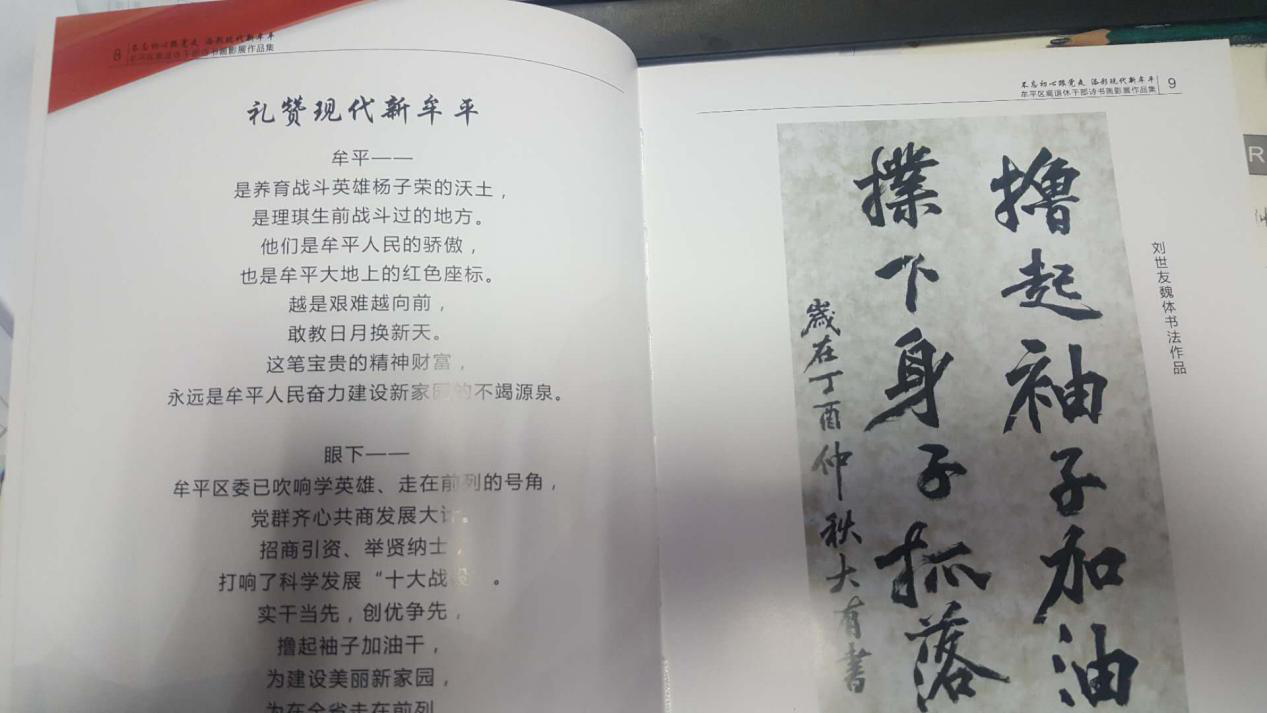 8
不忘初心跟党走 添彩现代新牟平
牟平区离退休干部诗书画影展作品集
礼赞现代新牟平
牟平——
是养育战斗英雄杨子荣的沃土，
是理琪生前战斗过的地方。
他们是牟平人民的骄傲，
也是牟平大地上的红色座标。
越是艰难越向前，
敢教日月换新天。
这笔宝贵的精神财富，
永远是牟平人民奋力建设新家园的不竭源泉。
眼下——
牟平区委已吹响学英雄、走在前列的号角，
党群齐心共商发展大计。
招商引资、举贤纳士，
打响了科学发展“十大战役”。
实干当先，创优争先，
撸起袖子加油干，
为建设美丽新家园，
为在全省走在前列
不忘初心跟党走 添彩现代新牟平
牟平区离退休干部诗书画影展作品集
9
撸起袖子加油
撲下身子抓落
歲在丁酉仲秋大有書
刘世友魏体书法作品
R